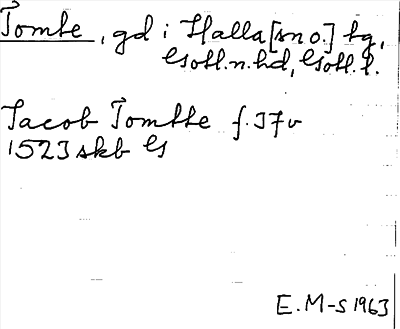 Tomte, gd i Halla [sn o.] tg,
Gotl. n. hd, Gotl. l.
Jacob Tomtte f. 37v
1523 skb G
E. M-s 1963